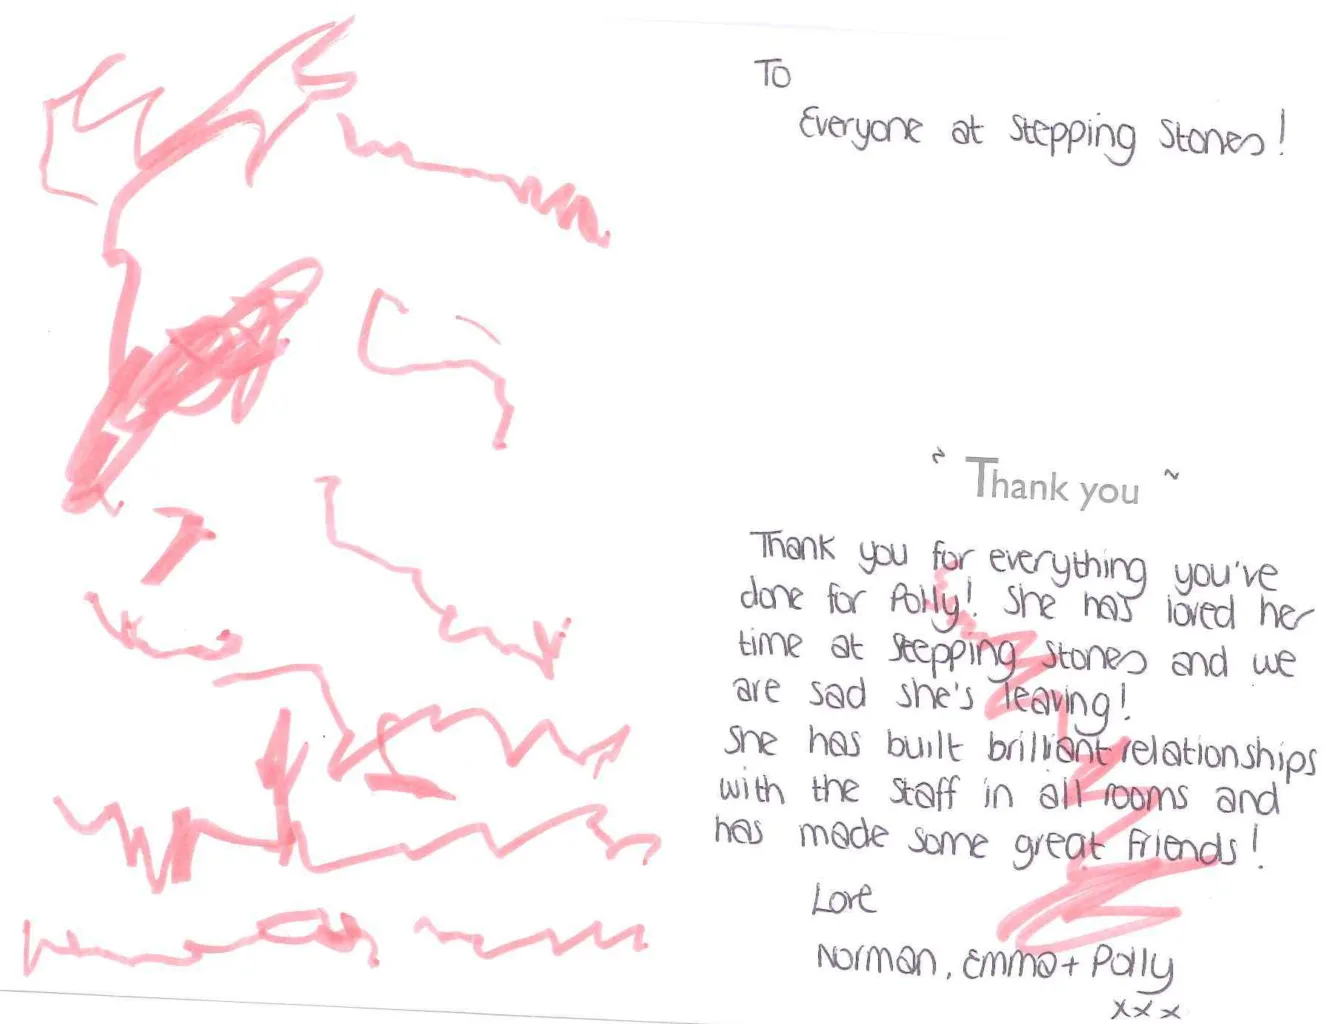 To
Everyone at Stepping Stones!
~ Thank you ~
Thank you for everything you've
done for Polly! She has loved her
time at Stepping Stones and we
are sad she's leaving!
She has built brilliant relationships
with the staff in all rooms and
has made some great friends!
Love
Norman, Emma + Polly
xxx